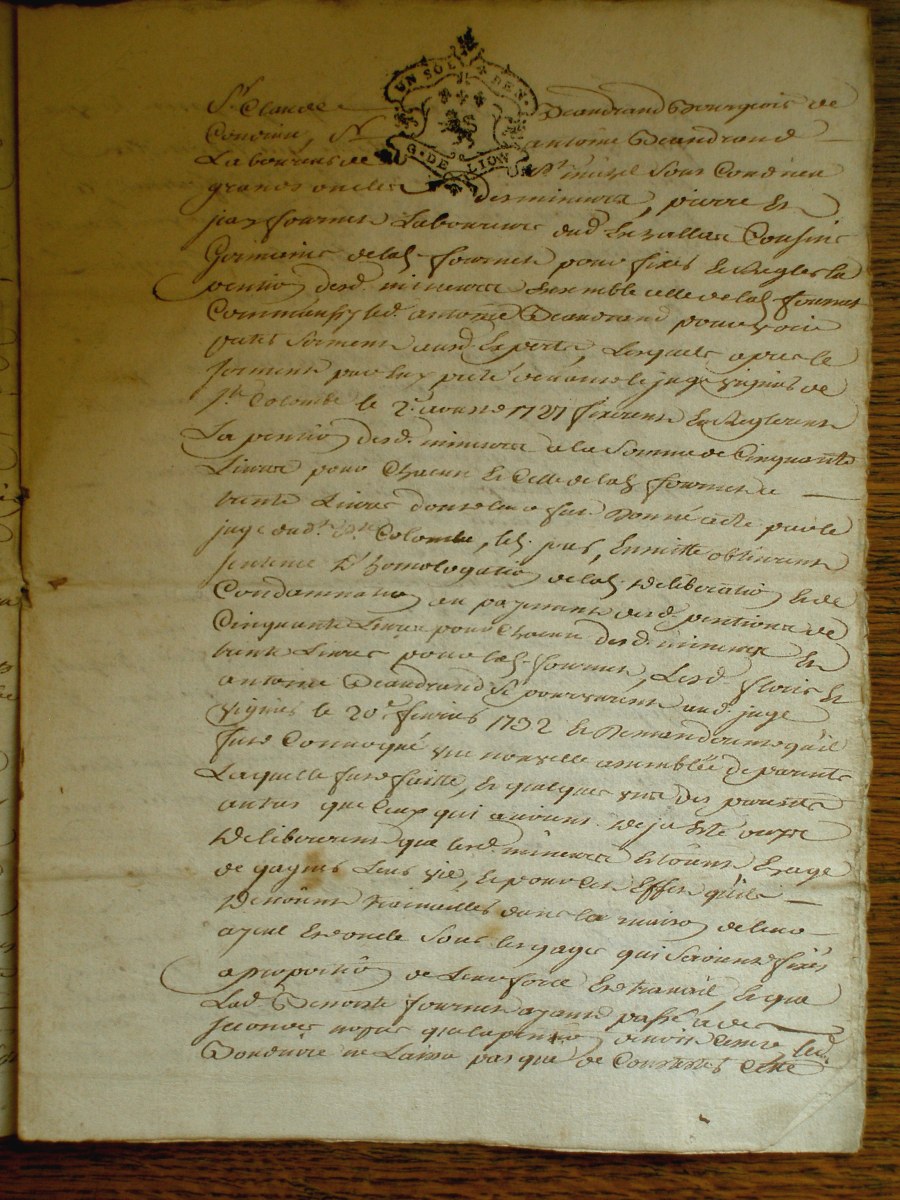 UN SOL DEN.
G. DE LION
Sr. Claude Deandrand Bourgeois de
Condrieu, Sr. antoine Deandrand
Laboureur de St. michel sous Condrieu
grands oncles desd. mineurs, pierre Et
jean fournet Laboureurs dud. Cousins
Germains delad. fournet pour fixer Et Regler la
pention desd. mineurs Ensemble celle delad. fournet
led. antoine Deandrand pour voir
preter serment ausd. Experts, Lesquels apres le
serment par Eux preté devant le juge vignes de
Ste. Colombe le 2e. aoust 1727 fixerent Et Reglerent
La pention desd. mineurs a la somme de Cinquante
Livres pour Chacun Et Celle delad. fournet a
trente Livres dont leur fut donné acte par le
juge dud. Ste. Colombe, les Ensuitte obtinrent
sentence d'homologation delad. Deliberation Et de
Condamnation au payement desd. pentions de
Cinquante Livres pour Chacun desd. mineurs Et
trente Livres pour lad. fournet, Lesd. floris Et
antoine Deandrand se pourvurent aud. juge
vignes le 20e. fevrier 1732 Et Demanderent qu'il
fut Convoqué une nouvelle assemblée de parents
Laquelle fut faitte, Et quelques uns des parents
autres que Ceux qui avoient deja Eté
Delibererent que lesd. mineurs Etoient En age
de gagner Leur vie, Et pour Cet Effet qu'ils
dans la maison de leur
ayeul Et oncle sous les gages qui seroient fixés
a proportion de Leur force Et travail, Et que
Lad. Benoite fournet ayant passé a de
secondes noces que la pention devoit Cesser led.
ne Laissa pas que de Contester Cette